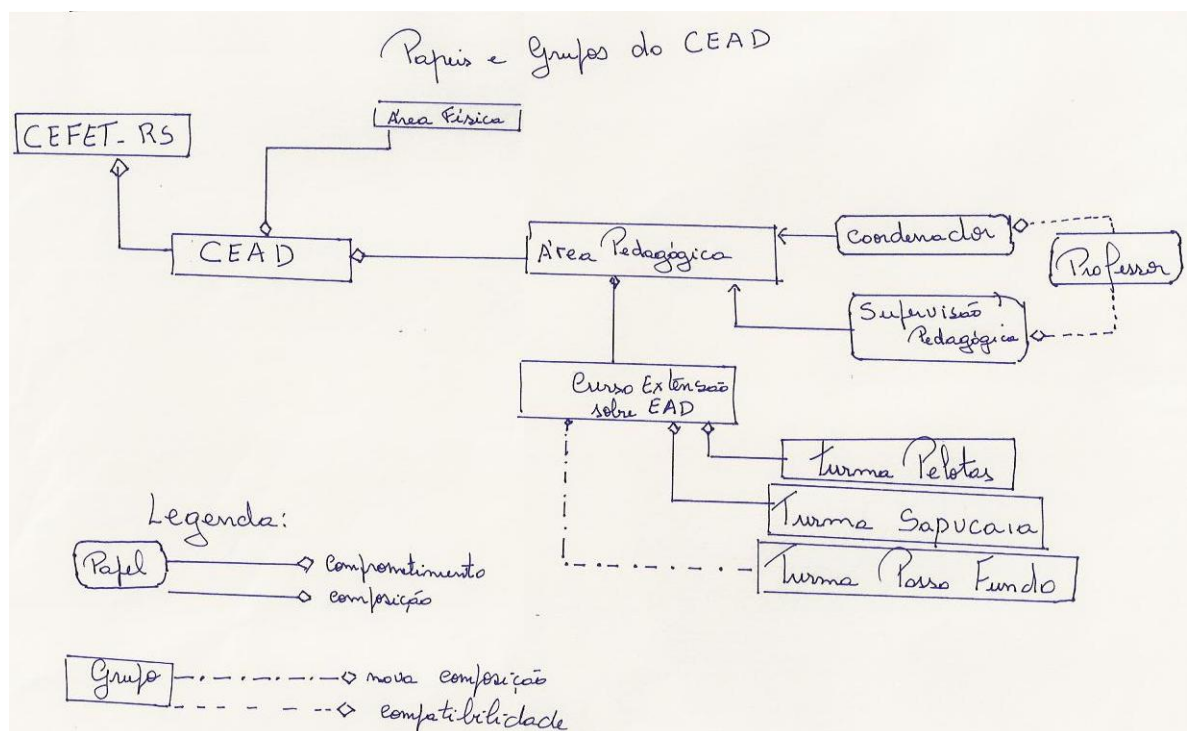 Papeis e Grupos do CEAD
Área Física
CEFET-RS
CEAD
Área Pedagógica
Coordenador
Professor
Supervisão
Pedagógica
Curso Extensão
sobre EAD
Turma Pelotas
Turma Sapucaia
Turma Passo Fundo
Legenda:
Papel
comprometimento
composição
Grupo
nova composição
compatibilidade